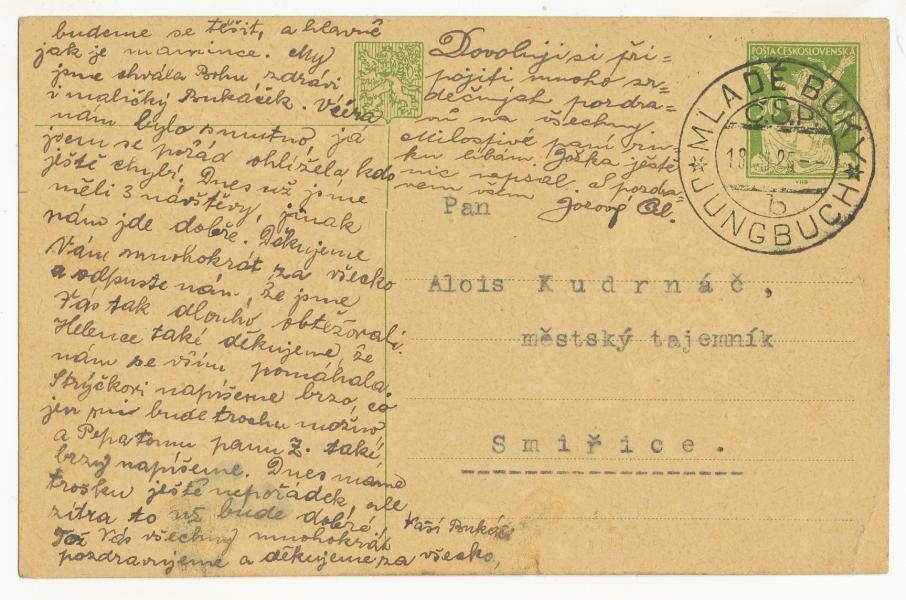 budeme se těšit, a hlavně
jak je mamince. My
jsme chvála Bohu zdrávi
i maličký Bukáček. Včera
nám bylo smutno, já
jsem se pořád ohlížela kdo
ještě chybí. Dnes už jsme
měli 3 návštěvy, jinak
nám jde dobře. Děkujeme
Vám mnohokrát za všecko
a odpuste nám, že jsme
Vás tak dlouho obtěžovali.
Helence také děkujeme, že
nám se vším pomáhala.
Strýčkovi napíšeme brzo, co
jen bude trochu možno
a Pepa tomu panu Z. také
brzy napíšeme. Dnes máme
trošku ještě nepořádek, ale
zítra to už bude dobré.
Vás všechny mnohokrát
pozdravujeme a děkujeme za všecko,
Vaši
Dovoluji si při=
pojiti mnoho sr=
dečných pozdra=
vů na všechny.
Milostivé paní
ku líbám. Joška ještě
nic nepsal. S pozdra=
vem všem
POŠTA ČESKOSLOVENSKÁ
MLADÉ BUKY
Č.S.P.
b
JUNGBUCH
Pan
Alois Kudrnáč,
městský tajemník
Smiřice.